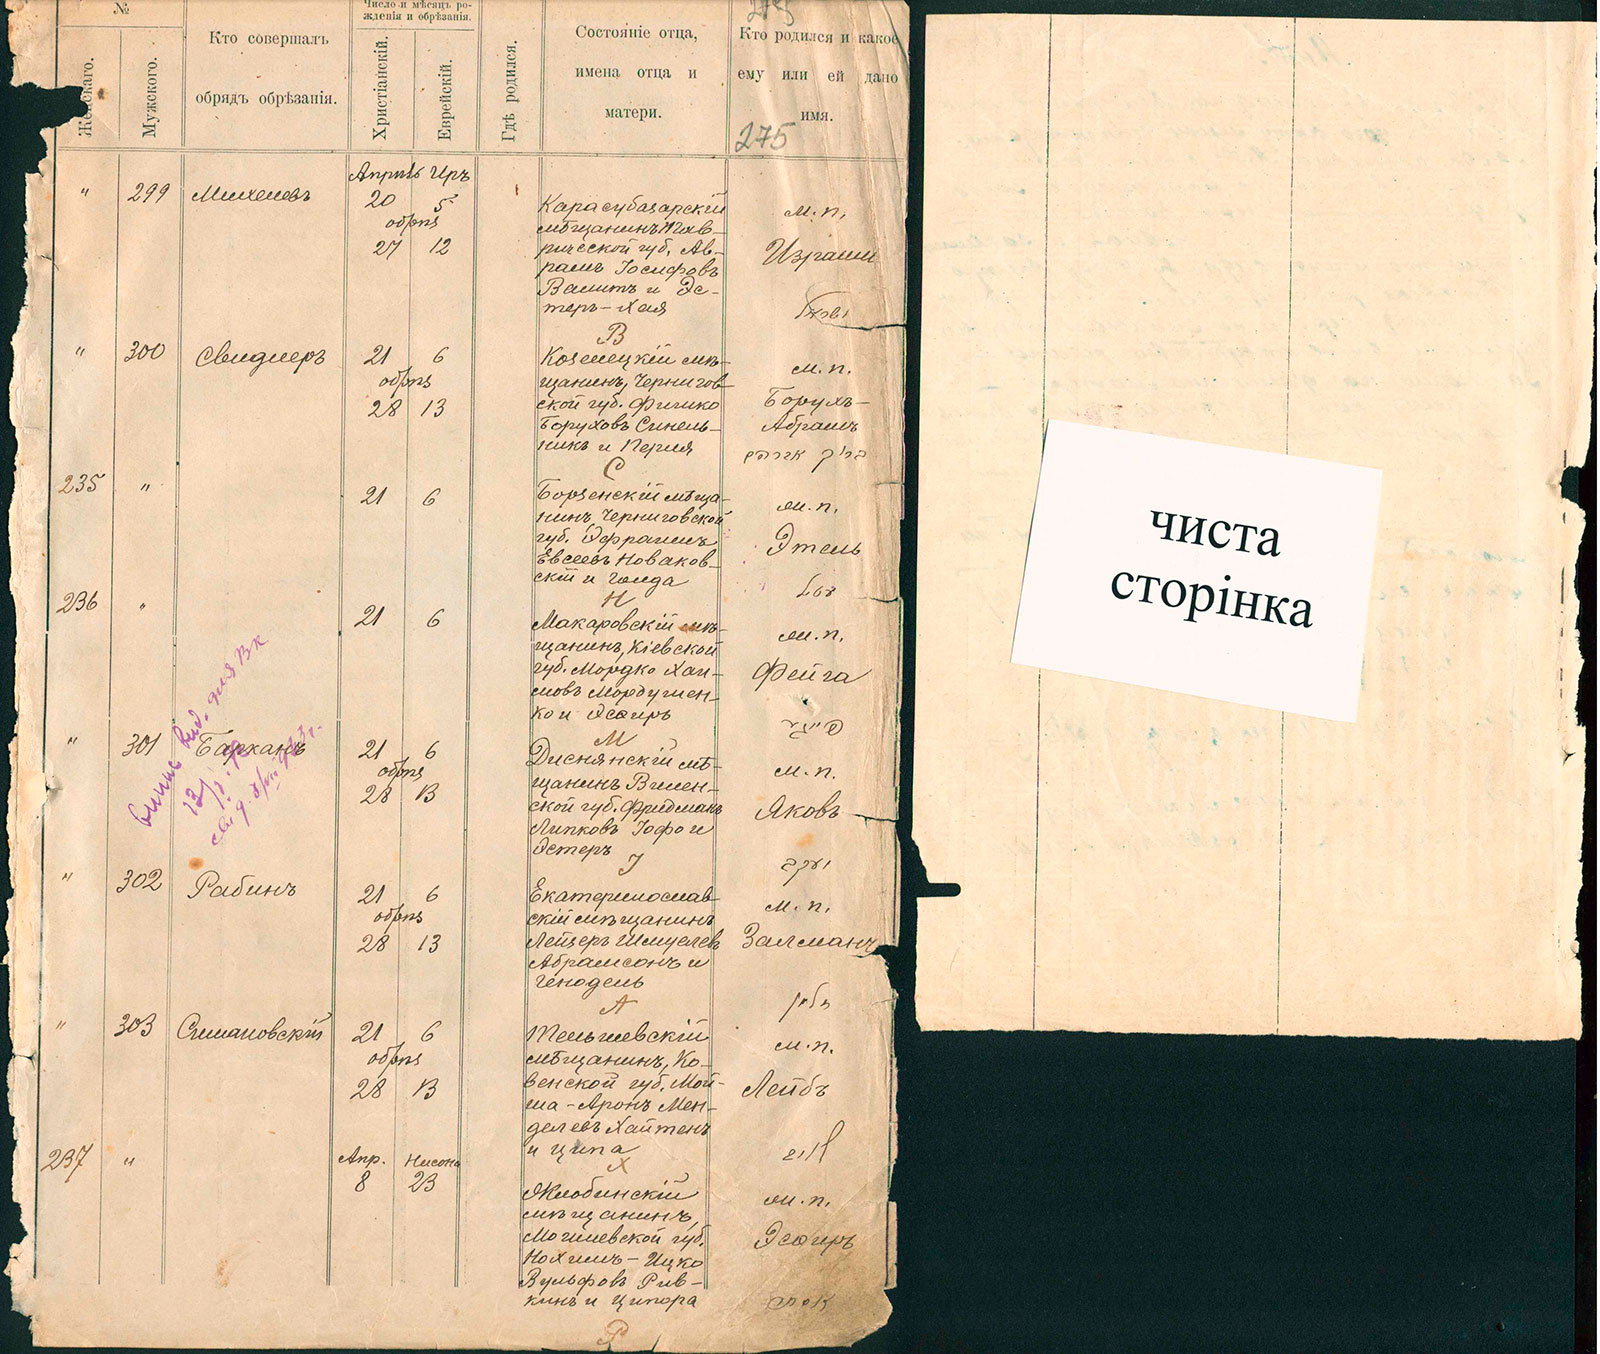 №
Женскаго.
Мужского.
Кто совершалъ
обрядъ обрѣзанія.
Число и мѣсяцъ ро-
жденія и обрѣзанія.
Христіанскій.
Еврейскій.
Гдѣ родился.
Состояніе отца,
имена отца и
матери.
Кто родился и какое
ему или ей дано
имя.
275
Апрѣль Иръ
" 299 20 5
обрѣз
27 12
Карасубазарскій
мѣщанинъ Тав-
рической губ. Ав-
рамъ Іосифовъ
и Эс-
теръ-Хая
В
м.п.
" 300 Свидлеръ 21 6
обрѣз
28 13
Козелецкій мѣ-
щанинъ, Чернигов-
ской губ. Фишко
Боруховъ Синель-
никъ и Перля
С
м.п.
Борухъ-
Абрамъ
235 " 21 6
Борзенскій мѣща-
нинъ Черниговской
губ. Эфраимъ
Евсеевъ Новаков-
скій и Голда
Н
м.п.
Этель
236 " 21 6
Макаровскій мѣ-
щанинъ, Кіевской
губ. Мордко Хаи-
мовъ
ко и Эсѳирь
М
м.п.
Фейга
פייגא
" 301 Барканъ 21 6
обрѣз
28 13
Диснянскій мѣ-
щанинъ Вилен-
ской губ. Фридманъ
Липковъ Іофо и
Эстеръ
І
м.п.
Яковъ
יעקב
" 302 Рабинъ 21 6
обрѣз
28 13
Екатеринослав-
скій мѣщанинъ
Лейзеръ Шмуелевъ
Абрамсонъ и
Генодель
А
м.п.
Залманъ
זלמן
" 303 Симановскій 21 6
обрѣз
28 13
Тельшевскій
мѣщанинъ, Ко-
венской губ. Мой-
ша-Аронъ Мен-
делевъ Хайтенъ
и Ципа
Х
м.п.
Лейбъ
237 " Апр. Нисона
8 23
мѣщанинъ,
Могилевской губ.
Нохимъ-Ицко
Вульфовъ Рив-
кинъ и Ципора
Р
м.п.
Эсѳирь
чиста
сторінка